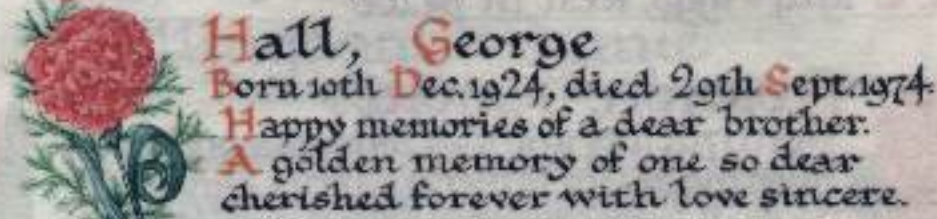 Hall, George
Born 10th Dec. 1924, died 29th Sept. 1974.
Happy memories of a dear brother.
A golden memory of one so dear
cherished forever with love sincere.